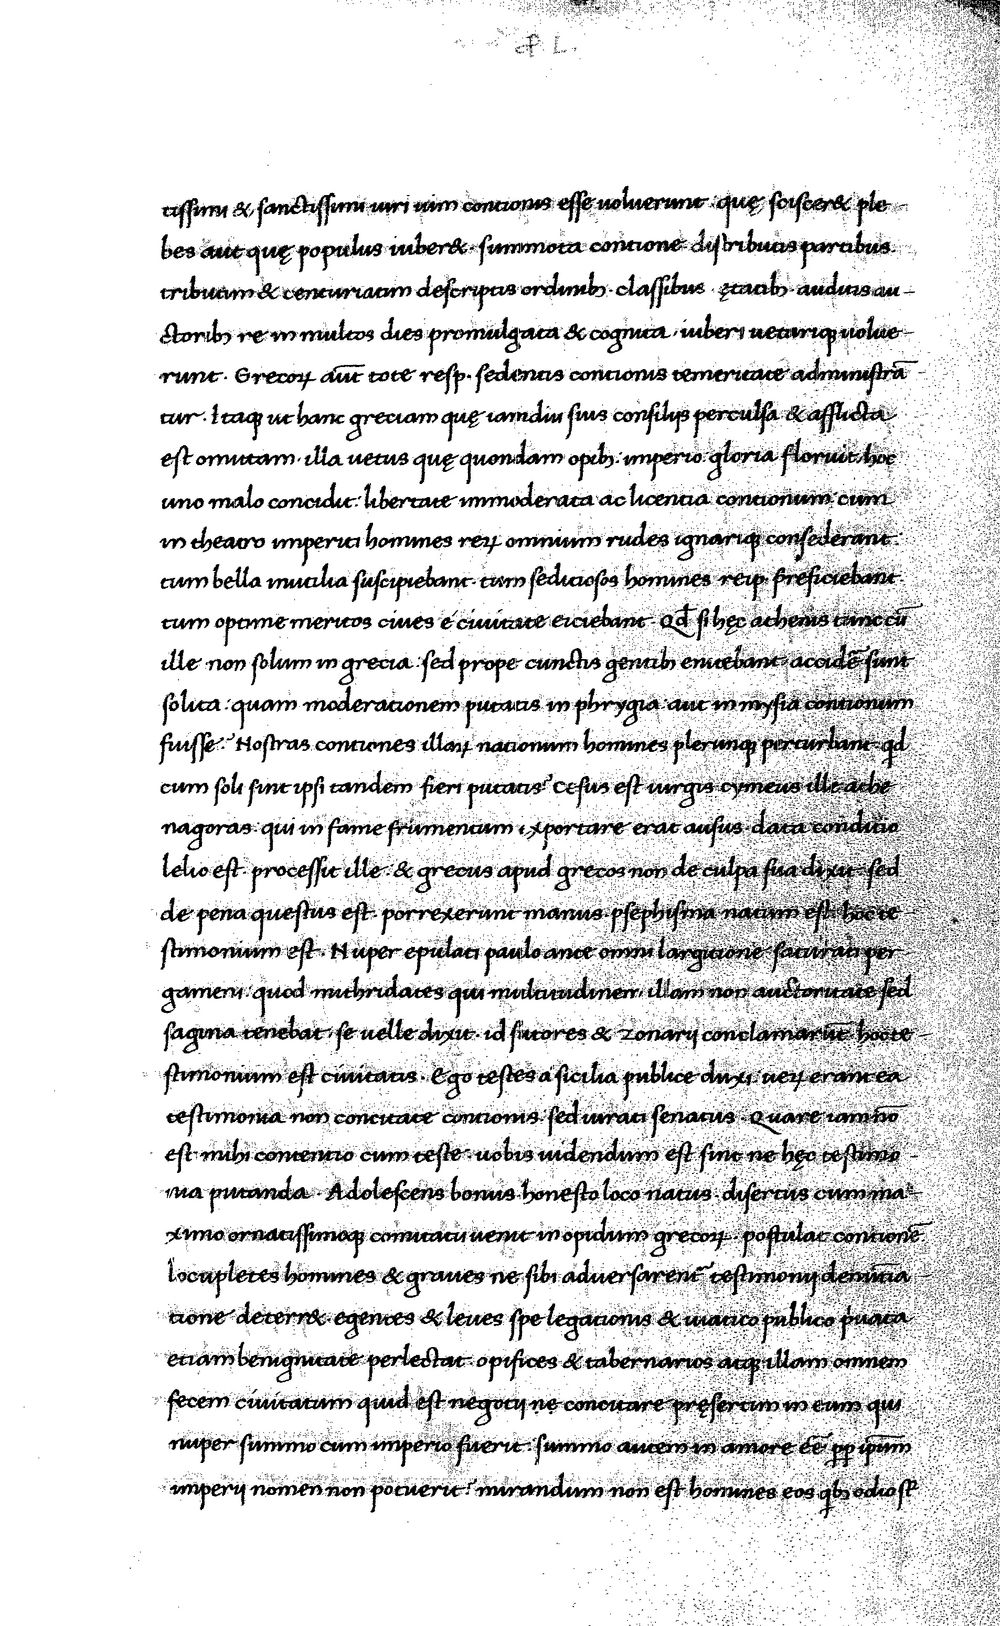 tissimi & sanctissimi uiri uim contionis esse uoluerunt. quę scisceret ple
bes aut quę populus iuber& · summota contione distributis partibus
tributim & centuriatim descriptis ordinibꝫ · classibus · ętatibꝫ · auditis au-
ctoribꝫ re in multos dies promulgata & cognita · iuberi uetariqꝫ uolue-
runt · Grecoꝝ aūt tote resp. sedentis contionis temeritate administrā
tur · Itaqꝫ ut hanc greciam quę iamdiu suis consilijs perculsa & afflicta
est omittam · illa uetus quę quondam opibꝫ · imperio gloria floruit hoc
uno malo concidit: libertate immoderata ac licentia contionum cum
in theatro imperiti homines reꝝ omnium rudes ignariqꝫ consederant ·
tum bella inutilia suscipiebant · tum seditiosos homines reip. preficiebant
tum optime meritos ciues é ciuitate eiciebant · Qd̄ si hęc athenis tunc cū
ille non solum in grecia · sed prope cunctis gentibꝫ enitebant · accidē sunt
solita: quam moderationem putatis in phrygia aut in mysia contionum
fuisse? Nostras contiones illaꝝ nationum homines plerunqꝫ perturbant qd
cum soli sint ipsi tandem fieri putatis? Cesus est uirgis cymeus ille athe
nagoras · qui in fame frumentum exportare erat ausus · data conditio
lelio est · processit ille · & grecus apud grecos non de culpa sua dixit · sed
de pena questus est · porrexerunt manus · psephisma natum est hoc te
stimonium est · Nuper epulati paulo ante omni largitione saturati per-
gameni: quod mithridates qui multitudinem illam non auctoritate sed
sagina tenebat · se uelle dixit · id sutores & zonarij conclamarūt hoc te-
stimonium est ciuitatis · Ego testes a sicilia publice duxi · ueꝝ erant ea
testimonia non concitate contionis · sed iurati senatus · Quare iam nō
est mihi contentio cum teste · uobis uidendum est sint ne hęc testimo-
nia putanda · Adolescens bonus honesto loco natus · disertus cum ma-
ximo ornatissimoqꝫ comitatu uenit in opidum grecoꝝ · postulat contionē
locupletes homines & graues ne sibi aduersarent᷑ testimonij denūtia
tione deterr& · egentes & leues spe legationis & uiatico publico p̍uata
etiam benignitate perlectat · opifices & tabernarios atqꝫ illam omnem
fecem ciuitatum quid est negotij ne concitare pręsertim in eum qui
nuper summo cum imperio fuerit · summo autem in amore eē pp̱ ip̄um
imperij nomen non potuerit? mirandum non est homines eos qibꝫ odio st̄